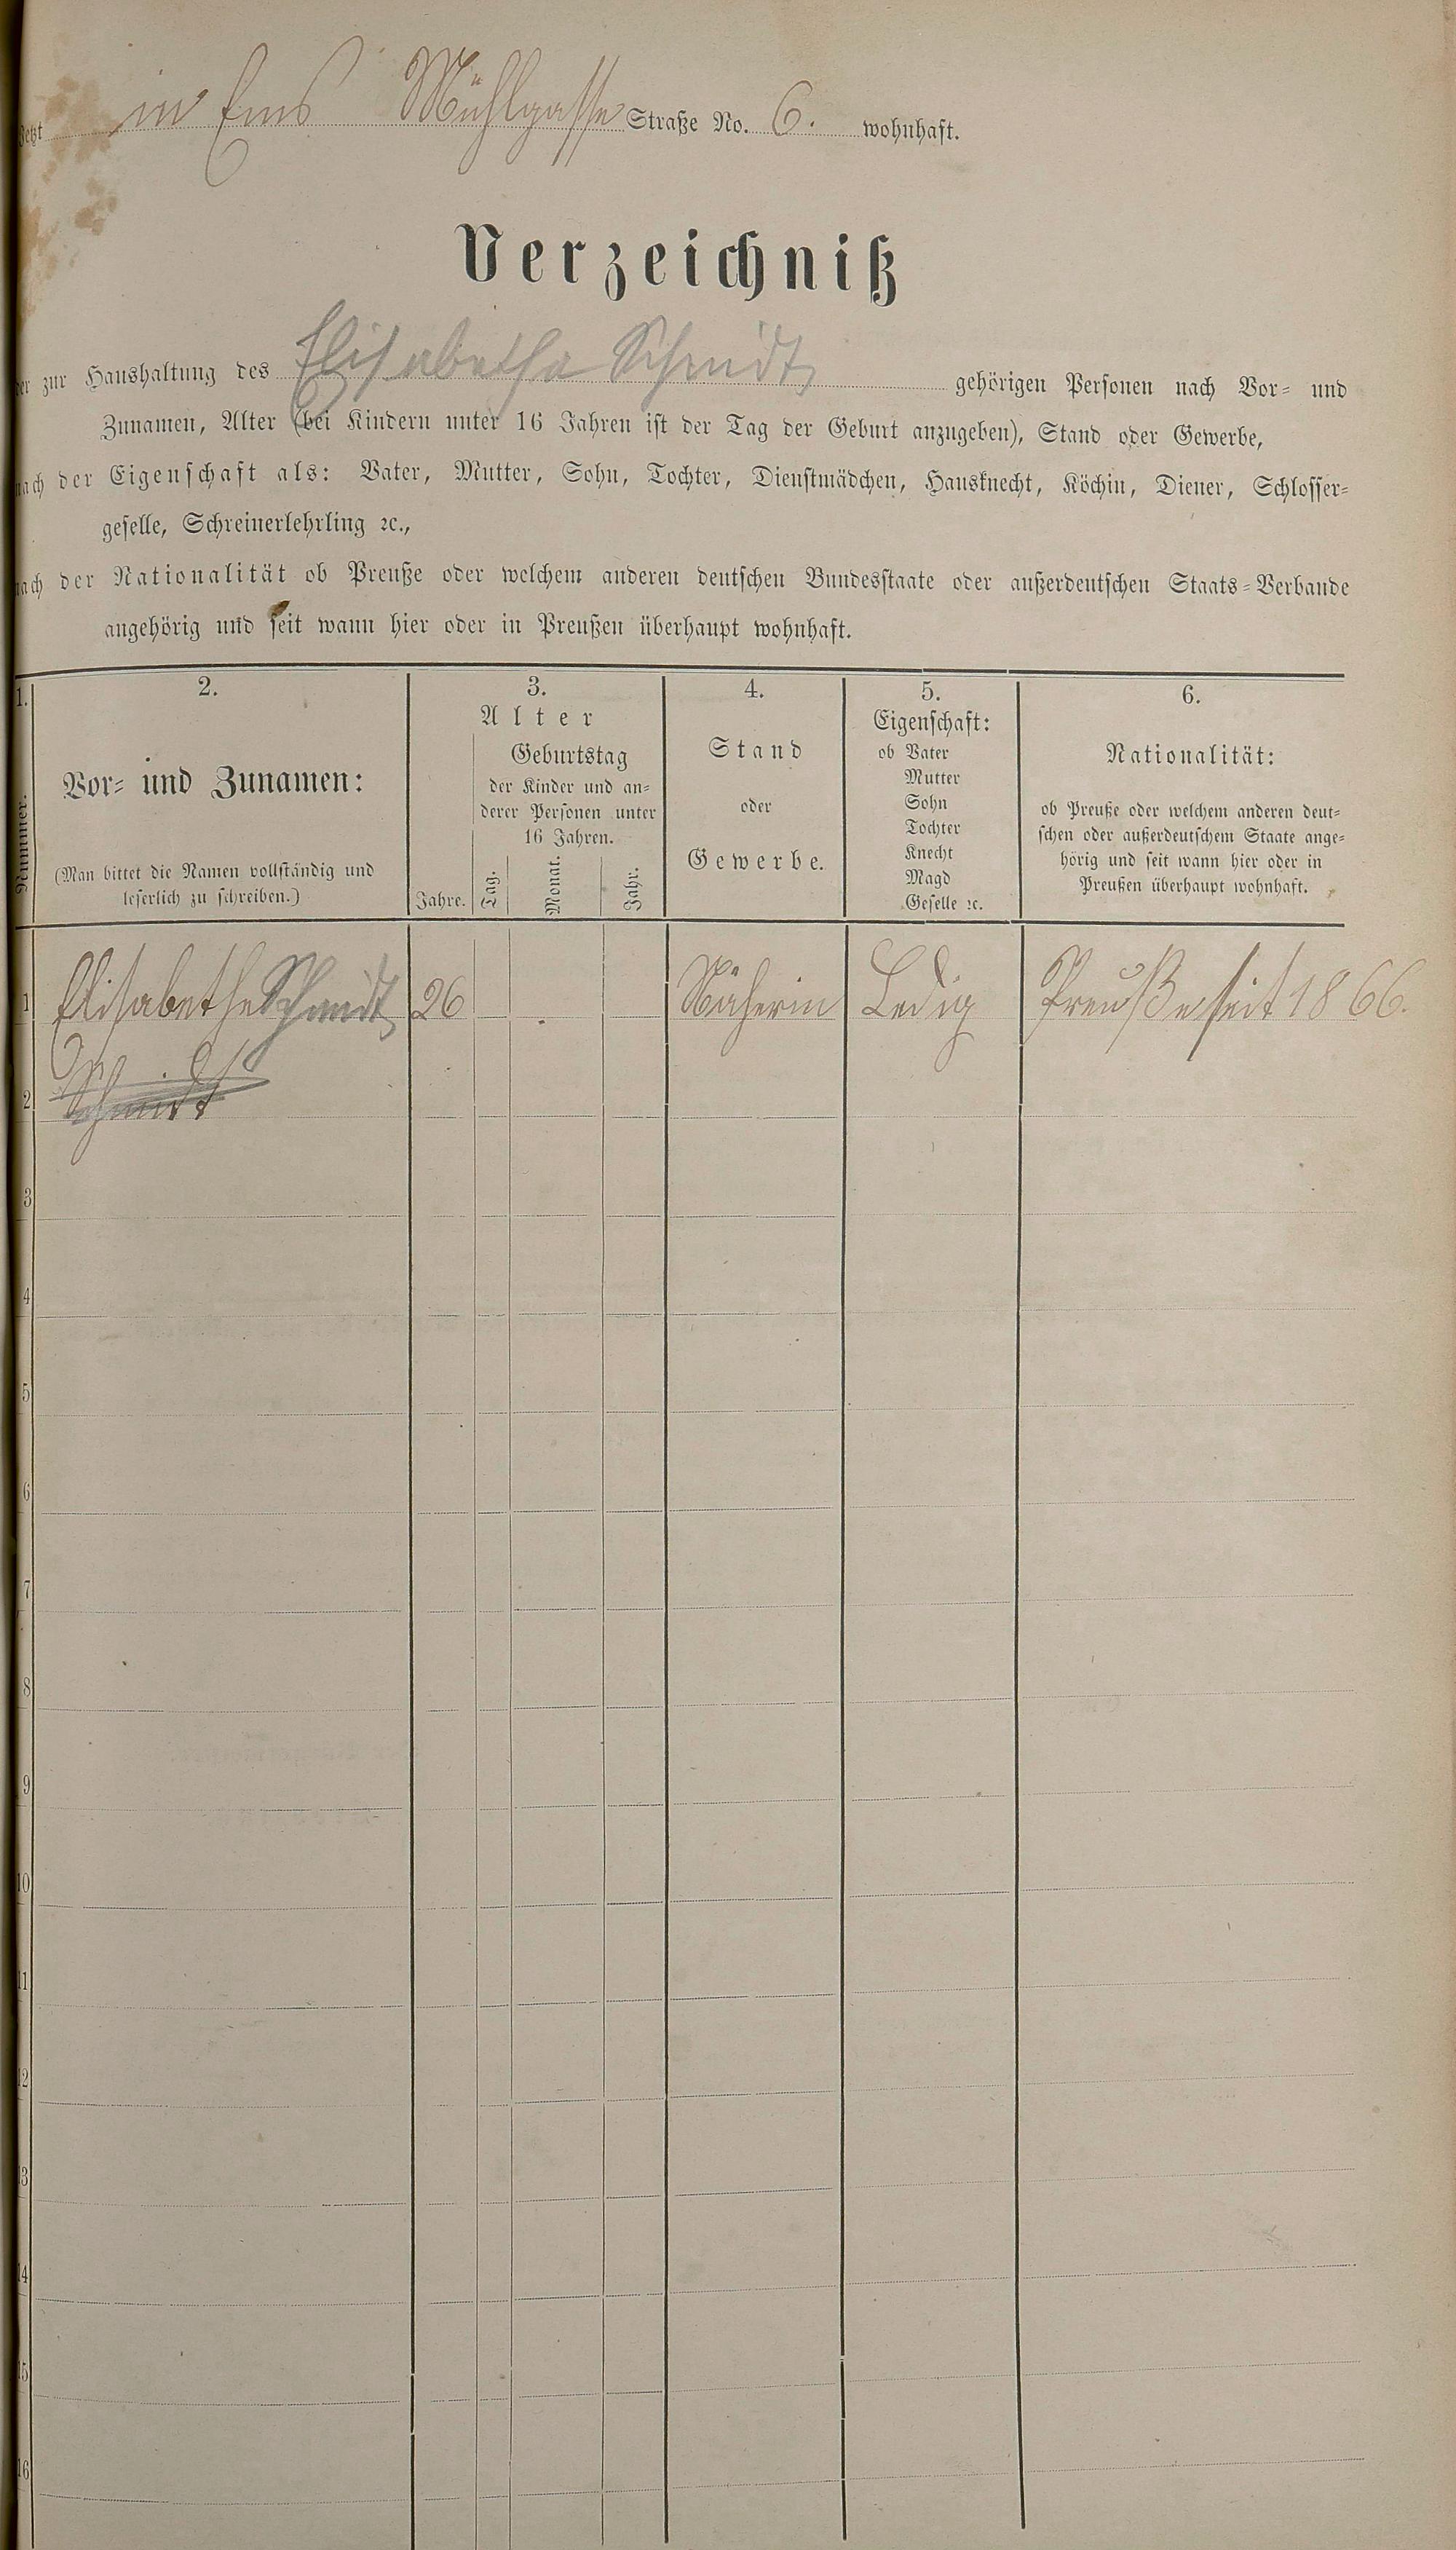 Jetzt in Ems Mühlgasse Straße No. 6. wohnhaft.
Verzeichniß
der zur Haushaltung des Elisabetha Schmidt gehörigen Personen nach Vor- und
Zunamen, Alter (bei Kindern unter 16 Jahren ist der Tag der Geburt anzugeben), Stand oder Gewerbe,
nach der Eigenschaft als: Vater, Mutter, Sohn, Tochter, Dienstmädchen, Hausknecht, Köchin, Diener, Schlosser-
geselle, Schreinerlehrling ꝛc.,
nach der Nationalität ob Preuße oder welchem anderen deutschen Bundesstaate oder außerdeutschen Staats-Verbande
angehörig und seit wann hier oder in Preußen überhaupt wohnhaft.
1.
Nummer.
2.
Vor- und Zunamen:
(Man bittet die Namen vollständig und
leserlich zu schreiben.)
3.
Alter
Jahre.
Geburtstag
der Kinder und an-
derer Personen unter
16 Jahren.
Tag.
Monat.
Jahr.
4.
Stand
oder
Gewerbe.
5.
Eigenschaft:
ob Vater
Mutter
Sohn
Tochter
Knecht
Magd
Geselle ꝛc.
6.
Nationalität:
ob Preuße oder welchem anderen deut-
schen oder außerdeutschem Staate ange-
hörig und seit wann hier oder in
Preußen überhaupt wohnhaft.
1 Elisabethe Schmidt 26 Näherin Ledig Preuße seit 1866.
2 Schmidt
3
4
5
6
7
8
9
10
11
12
13
14
15
16